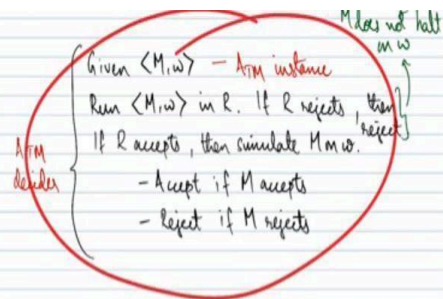 M does not halt
on w
Given <M,w> - A_TM instance
Run <M,w> in R. If R rejects, then
reject
If R accepts, then simulate M on w.
A_TM
decider
- Accept if M accepts
- Reject if M rejects